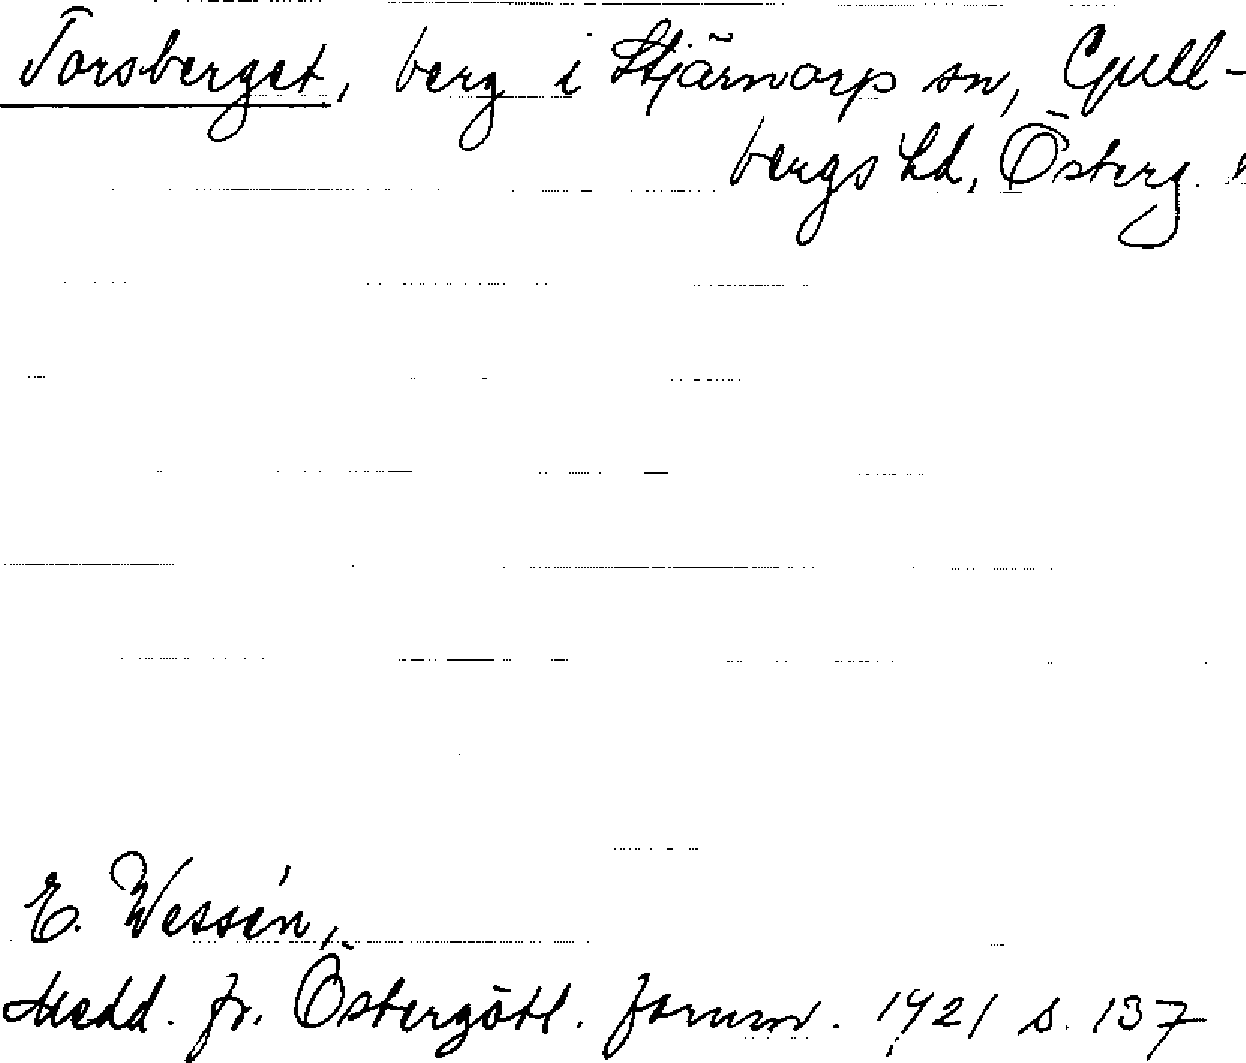 Torsberget, berg i Stjärnorp sn, Gull-
bergs hd, Österg.
E. Wessén,
Medd. fr. Östergötl. fornm. 1921 s. 137